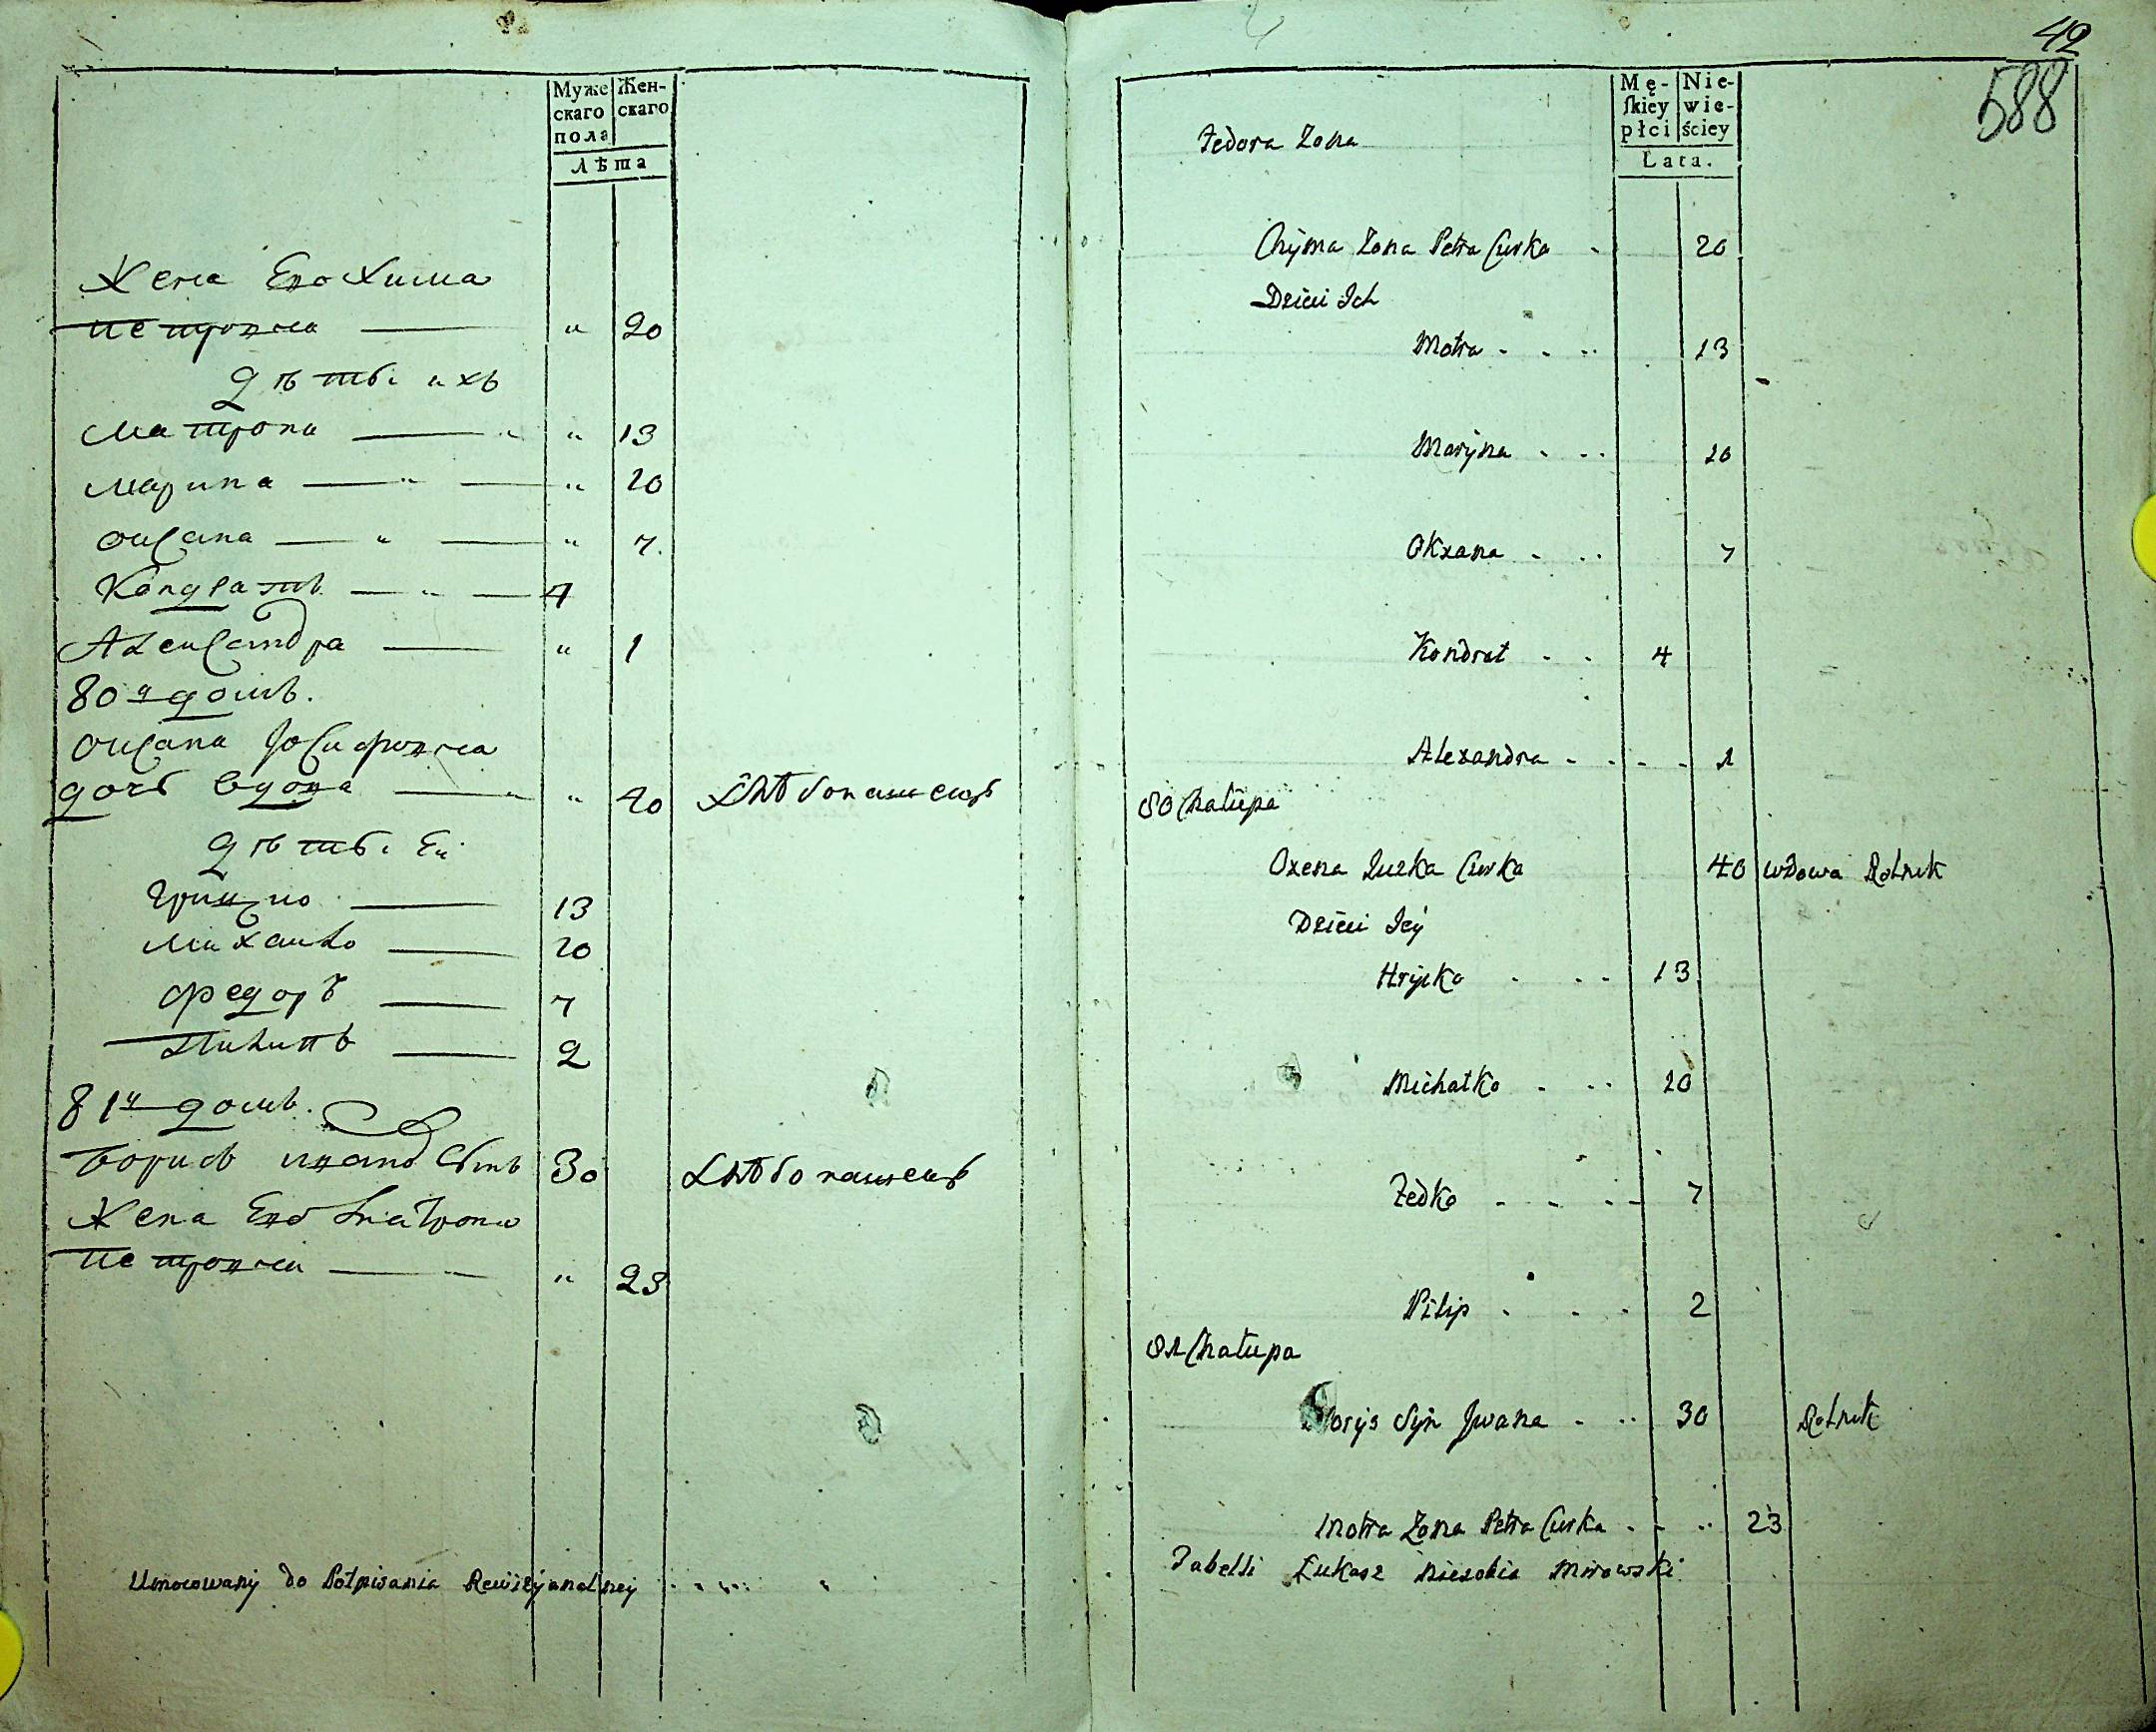 Муже
скаго
пола
Жен-
скаго
Лѣта
Жена Его Хима
Петрова 20
Дѣти ихъ
Матрона 13
Марина 10
Оксана 7.
Кондратъ 4
Александра 1
80й домъ.
Оксана Іосифова
дочь вдова 40 Хлѣбопашецъ
Дѣти Ей
Грицко 13
Михайло 10
Федоръ 7
Пилипъ 2
81й домъ.
Борисъ Ивановъ Сынъ 30 Хлѣбопашецъ
Жена Его Матрона
Петрова 23
Umocowany do Potpisania Rewizyonalney
42
588
Mę-
skiey
płci
Nie-
wie-
ściey
Lata.
Fedora Zona
Chyma Zona Petra Curka 20
Dzieci Ich
Motra 13
Maryna 10
Oxana 7
Kondrat 4
Alexandra 1
80 Chałupa
Oxena Juzka Curka 40 wdowa Rolnik
Dzieci Jey
Hrycko 13
Michałko 10
Fedko 7
Pilip 2
81 Chałupa
Borys Syn Jwana 30 Rolnik
Motra Zona Petra Curka 23
Tabelli Łukasz Mirowski